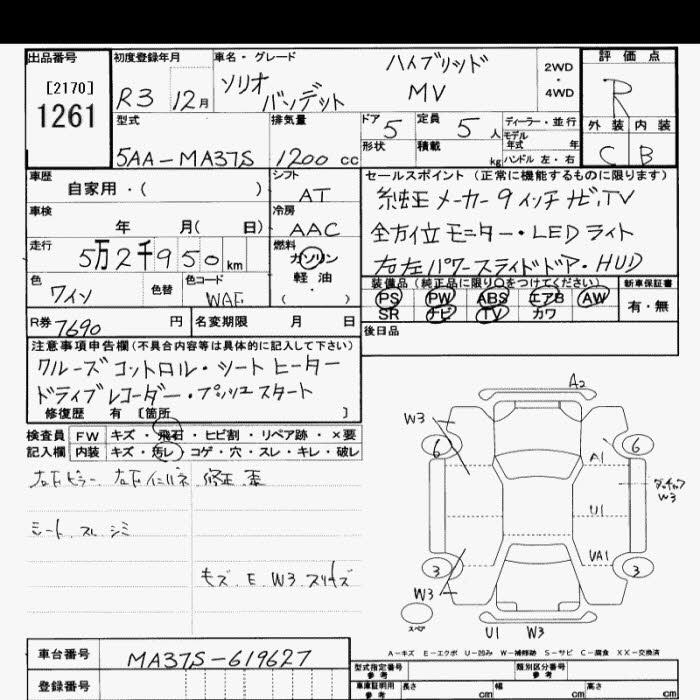 出品番号
[2170]
1261
初度登録年月
R3 12月
車名・グレード
ソリオ
バンデット
ハイブリッド
MV
2WD
・
4WD
評価点
R
外装 内装
C B
型式
5AA-MA37S
排気量
1200 cc
ドア
5
定員
5 人
形状
積載
kg
ディーラー・並行
モデル
年式 年
ハンドル 左・右
車歴
自家用・( )
シフト
AT
車検
年 月( 日)
冷房
AAC
走行
5万2千950km
燃料
ガソリン
・
軽油
( )
色
ワイン
色替
色コード
R券 7690 円
名変期限 月 日
セールスポイント(正常に機能するものに限ります)
純正メーカー9インチナビ,TV
全方位モニター・LEDライト
右左パワースライドドア・HUD
装備品(純正品に限り○をつけてください)
PS PW ABS エアB AW
SR ナビ TV カワ
新車保証書
有・無
後日品
注意事項申告欄(不具合内容等は具体的に記入して下さい)
クルーズコントロール・シートヒーター
ドライブレコーダー・プッシュスタート
修復歴 有 [箇所 ]
検査員
記入欄
FW キズ・飛石・ヒビ割・リペア跡・×要
内装 キズ・汚レ・コゲ・穴・スレ・キレ・破レ
シート スレ シミ
キズ E W3
A2
W3
6
6
A1
U1
W3
UA1
3
3
W3
スペア
U1 W3
A-キズ E-エクボ U-凹み W-補修跡 S-サビ C-腐食 XX-交換済
車台番号
MA37S-619627
登録番号
型式指定番号
参考
類別区分番号
参考
車庫証明用
参考
長さ cm
幅 cm
高さ cm